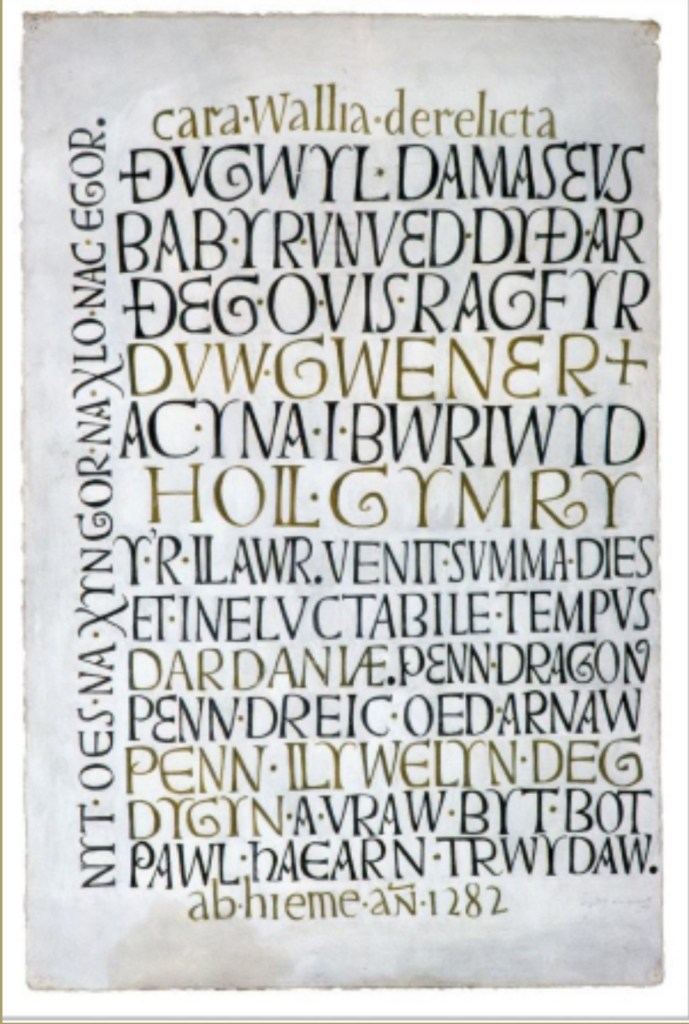 cara·Wallia·derelicta
ÐVGWYL·DAMASEVS
BAB·YR·VNVED·DYÐ·AR
ÐEG·O·VIS·RAGFYR
DVW·GWENER+
AC·YNA·I·BWRIWYD
HOLL·GYMRY
Y'R·LLAWR.VENIT·SVMMA·DIES
ET·INELVCTABILE·TEMPVS
DARDANIÆ.PENN·DRAGON
PENN·DREIC·OED·ARNAW
PENN·LLYWELYN·DEG
DYGYN·A·VRAW·BYT·BOT
PAWL·hAEARN·TRWYDAW.
ab·hieme·añ·1282
NYT·OES·NA·XYNGOR·NA·XLO·NAC·EGOR.